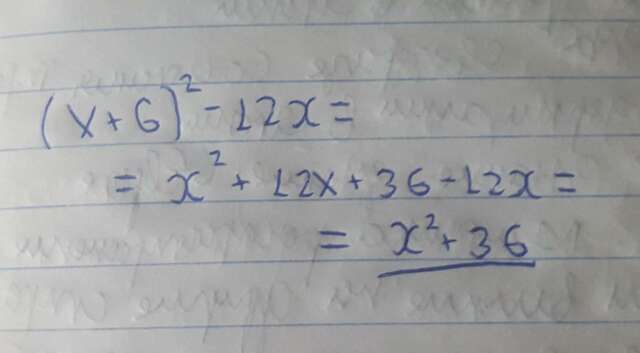 (x+6)²-12x=
= x²+12x+36-12x=
= x²+36